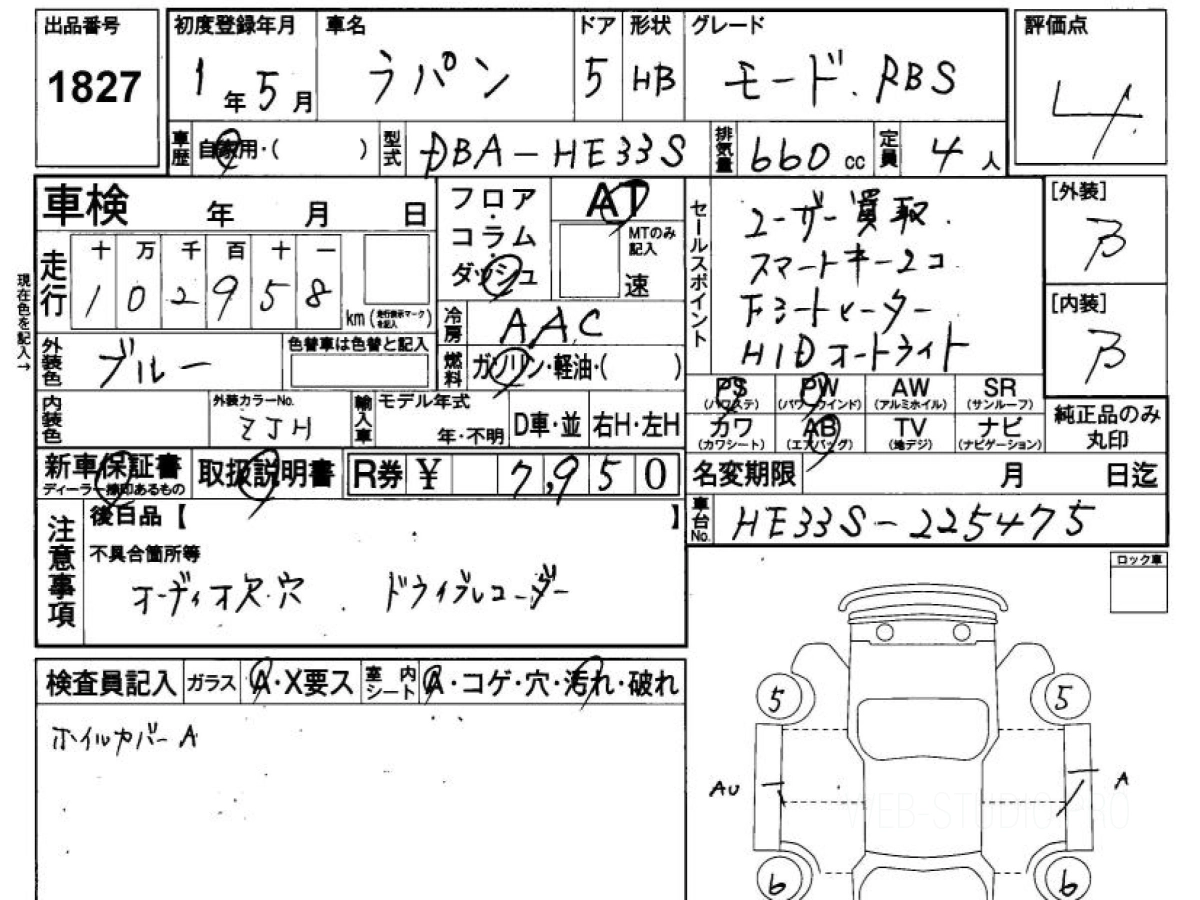 出品番号 1827
初度登録年月 1年5月
車名 ラパン
ドア 5
形状 HB
グレード モード.RBS
評価点 4
車歴 自家用・( )
型式 DBA-HE33S
排気量 660cc
定員 4人
車検 年 月 日
走行 十 万 千 百 十 一
1 0 2 9 5 8 km (走行表示マークを記入)
現在色を記入→
外装色 ブルー
色替車は色替と記入
内装色
外装カラーNo. ZJH
フロア・コラム・ダッシュ
AT
MTのみ記入
速
冷房 AAC
燃料 ガソリン・軽油・( )
輸入車 モデル年式 年・不明
D車・並
右H・左H
セールスポイント
ユーザー買取.
スマートキー2コ
下ミートメーター
HIDオートライト
[外装] B
[内装] B
PS (パワステ)
PW (パワーウインド)
AW (アルミホイル)
SR (サンルーフ)
カワ (カワシート)
AB (エアバッグ)
TV (地デジ)
ナビ (ナビゲーション)
純正品のみ
丸印
新車保証書
ディーラー捺印あるもの
取扱説明書
R券 ¥ 7,950
名変期限 月 日迄
車台No. HE33S-225475
注意事項
後日品【 】
不具合箇所等
オーディオ欠.穴 ドライブレコーダー
ロック車
検査員記入
ガラス A・X要ス
室内シート A・コゲ・穴・汚れ・破れ
ホイルカバーA
5 5
AU A
6 6
WEB-STUDIO.PRO